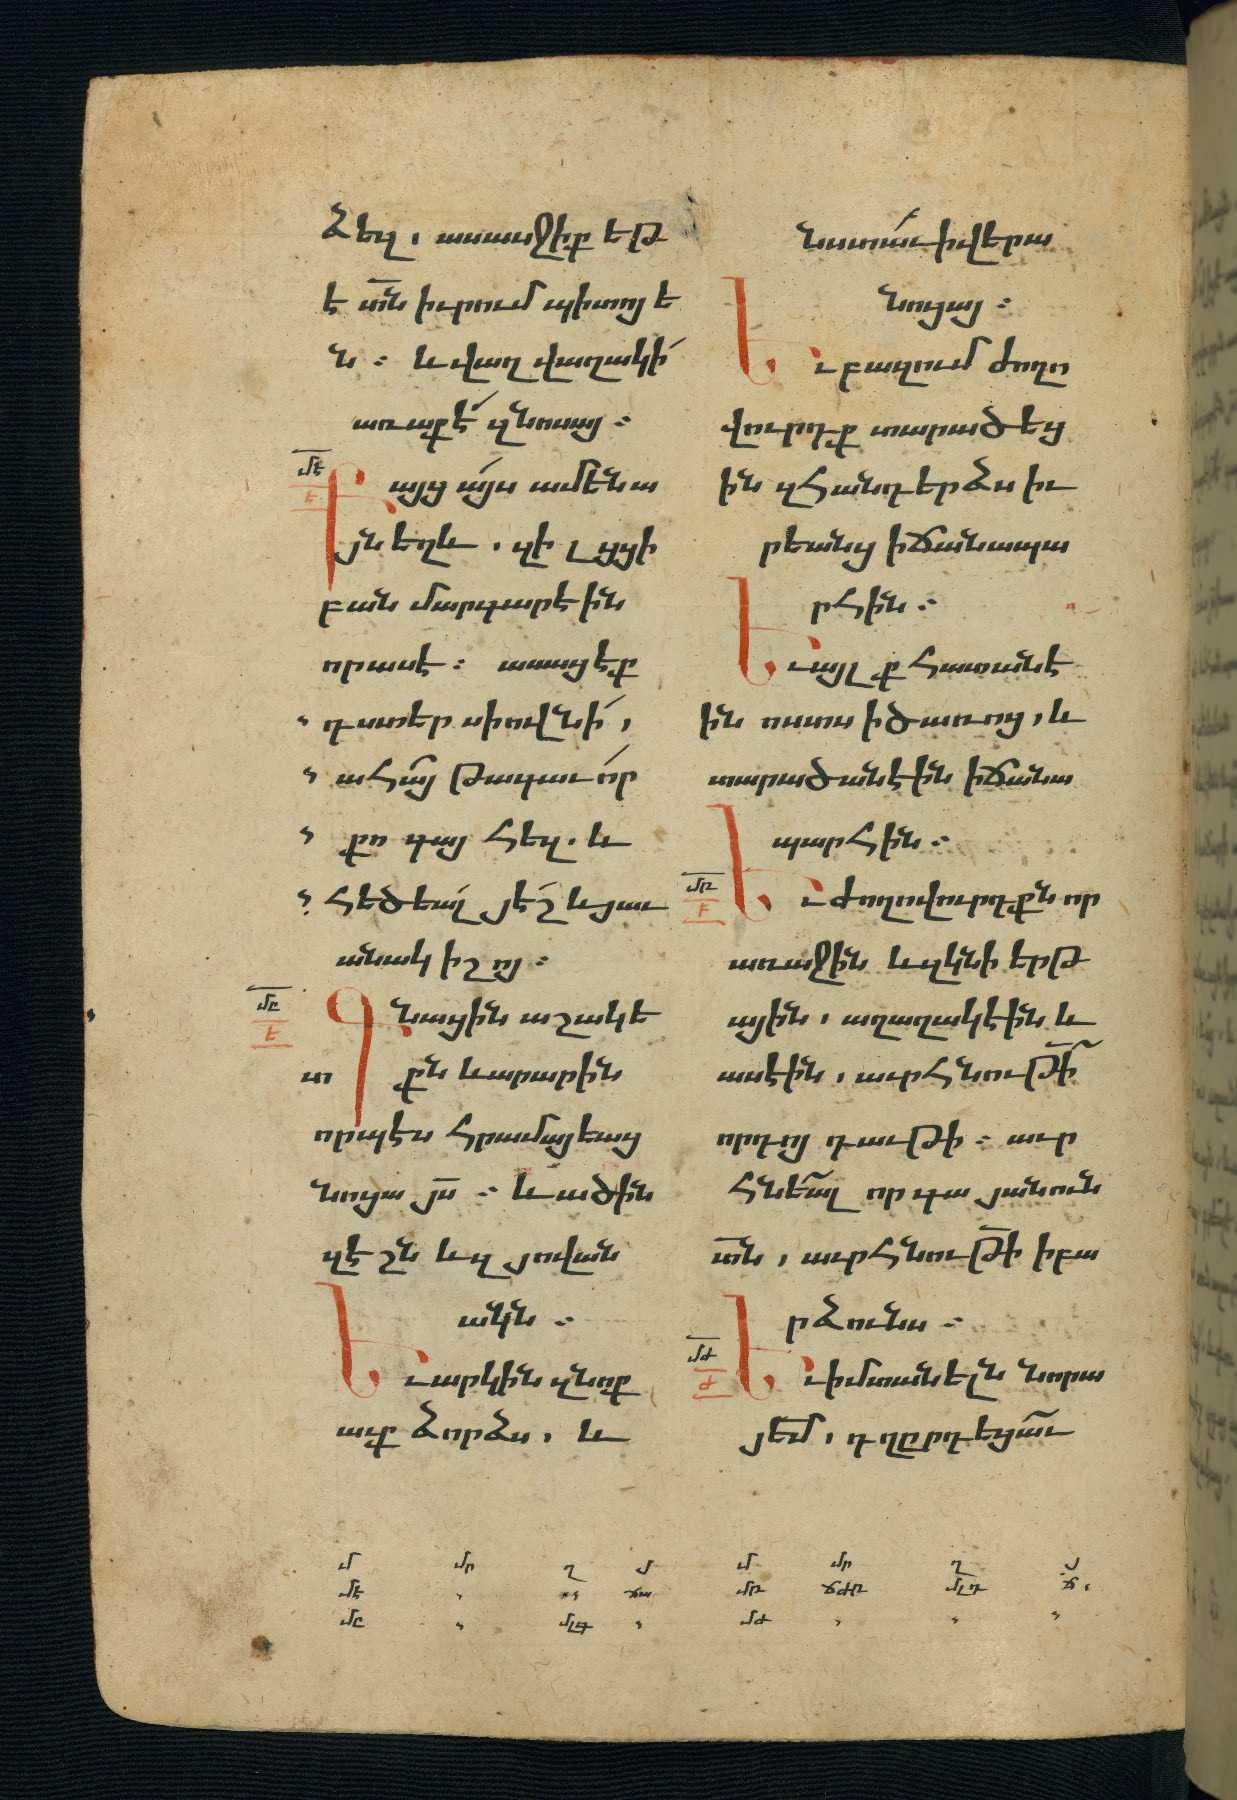 ձեզ, ասասջիք եթ
է տ՟ն իւրում պիտոյ ե
ն ։ և վաղ վաղակի՛
առաքէ՛ զնոսայ ։
մէ
ե
Բայց ա՛յս ամենա
յն եղև, զի լցցի
բան մարգարէին
որ ասէ ։ ասացէք
դստեր սիովնի՛,
ահա՛յ թագաւո՛ր
քո գայ հեզ. և
հեծեա՛լ յէ՛շ և յաւ
անակ իշոյ ։
մը
է
Գնացին աշակե
տ քն և արարին
որպէս հրամայեաց
նոցա յ՟ս ։ և ածին
զէշն և զյովան
ակն ։
Եւ արկին զնոք
աւք ձորձս, և
նստա՛ւ ի վերա
նոցայ ։
Եւ բազում ժողո
վուրդք տարածեց
ին զհանդերձս իւ
րեանց ի ճանապա
րհին ։
Եւ այլ ք հատանէ
ին ոստս ի ծառոց, և
տարածանէին ի ճանա
պարհին ։
մթ
բ
Եւ ժողովուրդքն որ
առաջին և զկնի երթ
ային, աղաղակէին և
ասէին, աւրհնութի՟
որդոյ դաւթի ։ աւր
հնեա՟լ որ գա յանուն
տ՟ն, աւրհնութի՟ ի բա
րձունս ։
մժ
ժ
Եւ ի մտանելն նորա
յեմ, դղըրդեցա՟ւ
մ մր ղ յ մ մր ղ յ
մէ ճա մթ ճժթ մլդ ճ
մը մլգ մժ